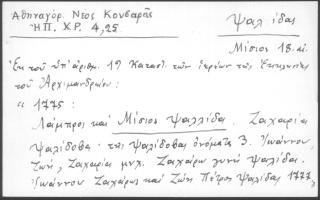 Αθηναγόρ. Νέος Κουβαρᾶς
ΗΠ. ΧΡ. 4, 25
Ψαλίδας
Μίσιος 18. αἰ.
Ἐκ τοῦ ὑπ' ἀριθμ. 19 Καταστ. τῶν ἱερέων τῆς Ἐκκλησίας
τοῦ Ἀρχιμανδρείου:
" 1775:
Λάμπρος καὶ Μίσιος Ψαλλίδα. Ζαχαρία
Ψαλίδοβα: τῆς Ψαλίδοβας ὀνόματα 3. Ἰωάννου,
Ζωή, Ζαχαρία μνχ. Ζαχάρω γυνὴ Ψαλίδα.
Ἰωάννου Ζαχάρως καὶ Ζώη Πέτρος Ψαλίδας 1777,